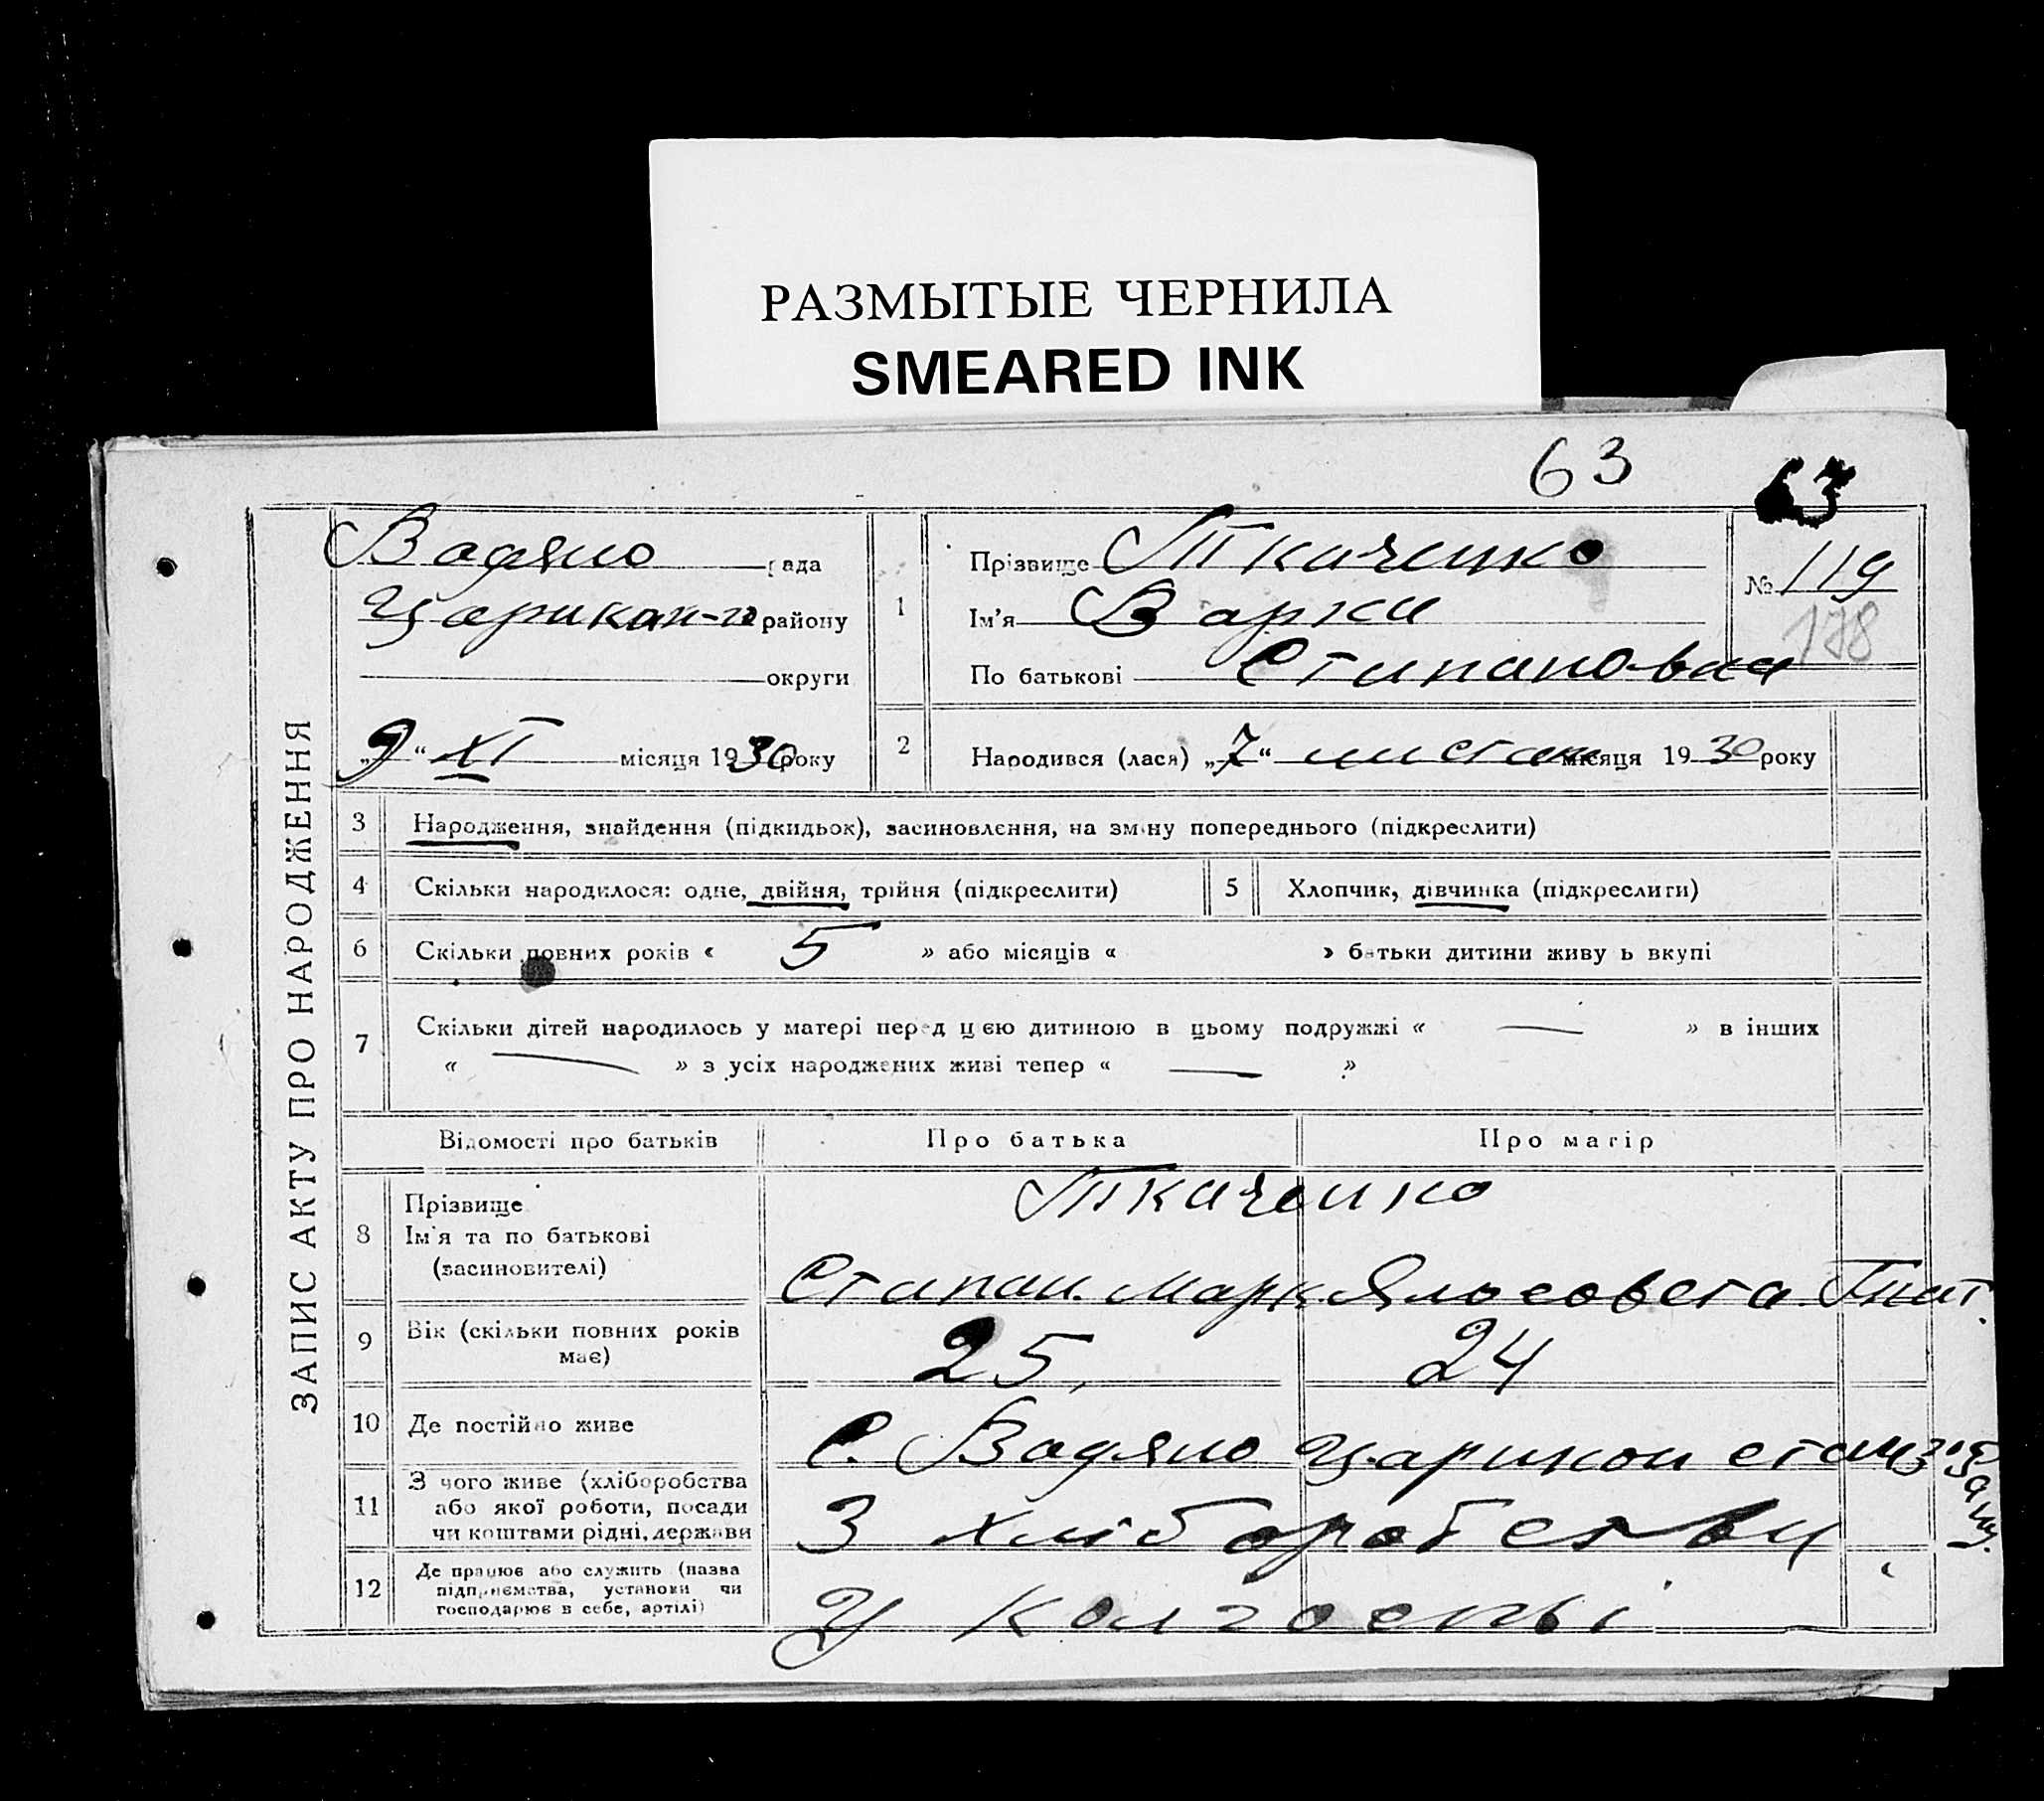 РАЗМЫТЫЕ ЧЕРНИЛА
SMEARED INK
63 63
ЗАПИС АКТУ ПРО НАРОДЖЕННЯ
Водяно рада
Царикан-го району
округи
„9“ XI місяця 1930 року
1
Прізвище Ткаченко
Ім'я Варка
По батькові Степановна
№ 119
178
2 Народився (лася) „7“ листоп місяця 1930 року
3 Народження, знайдення (підкидьок), засиновлення, на зміну попереднього (підкреслити)
4 Скільки народилося: одне, двійня, трійня (підкреслити) 5 Хлопчик, дівчинка (підкреслити)
6 Скільки повних років « 5 » або місяців « » батьки дитини живуть вкупі
7 Скільки дітей народилось у матері перед цією дитиною в цьому подружжі « — » в інших
« — » з усіх народжених живі тепер « — »
Відомості про батьків Про батька Про матір
8 Прізвище
Ім'я та по батькові
(засиновителі)
Ткаченко
Степан. Марк. Яльсовета Гнат.
9 Вік (скільки повних років
має)
25, 24
10 Де постійно живе
С. Водяно Царикон
11 З чого живе (хліборобства
або якої роботи, посади
чи коштами рідні, держави
З хліборобства
12 Де працює або служить (назва
підприємства, установи чи
господарює в себе, артілі)
У колгоспі